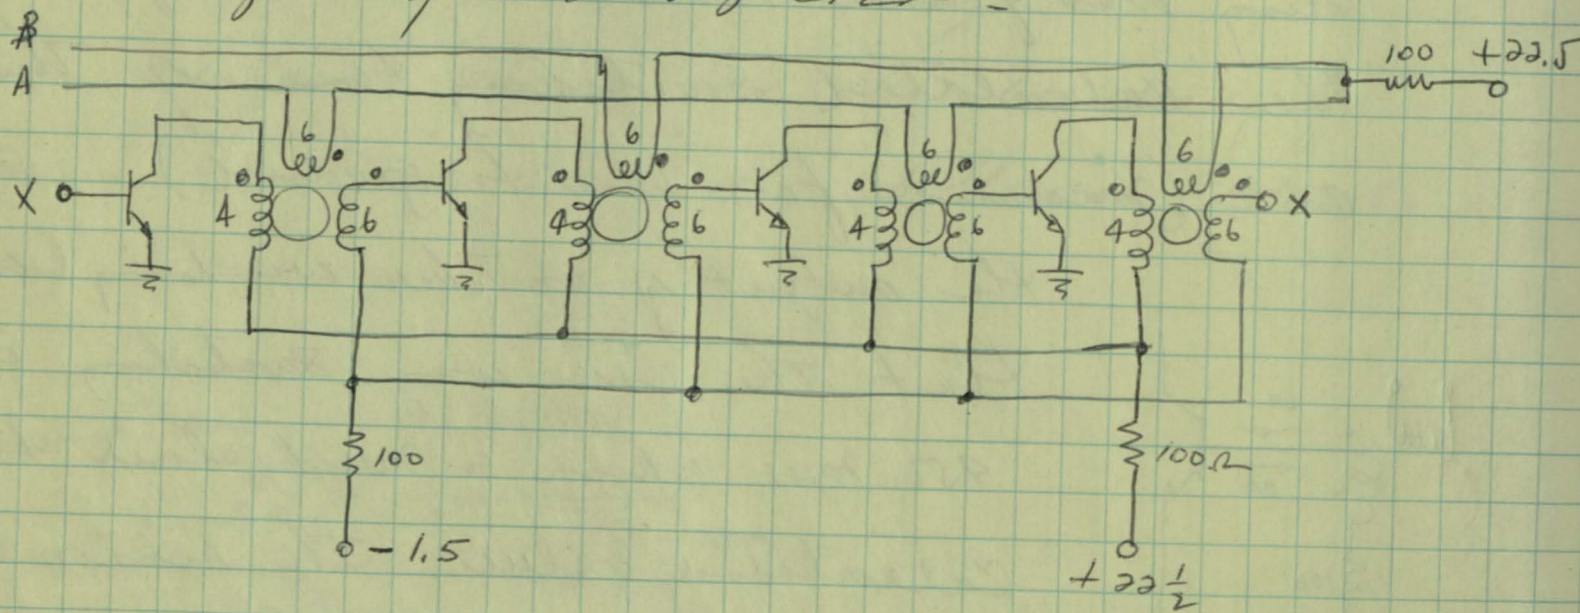 B
100 +22.5
A
6 6 6 6
X 4 6 4 6 4 6 4 6 X
100 100Ω
-1.5 +22 1/2